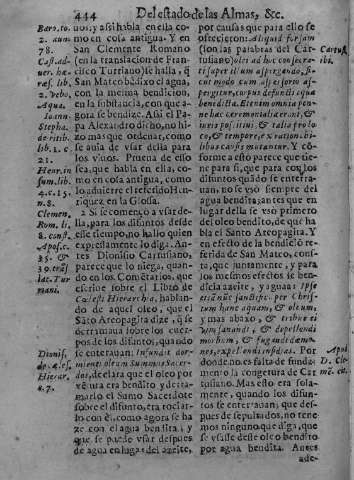 444 Del estado de las Almas, &c.
Baro. to.
2. ann.
78.
Cast. ad-
uer. hæ-
ref. lib.
2. verbo,
Aqua.
Ioann.
Stepha.
de ritib.
lib. 1. c.
21.
Henr. in
sum. lib.
4. c. 15.
n. 8.
Clemen.
Rom. li.
8. const.
Apos. c.
35. &
30.
Dionis.
de
Hierar.
c. 7.
uos; y assi habla en ella co-
mo en cosa antigua. Y en
San Clemente Romano
(en la translacion de Fran-
cisco Turriano) se halla, q̃
San Mateo bédixo el agua,
con la mesma bendicion,
en la substancia, con que a-
gora se bendize. Assi el Pa-
pa Alexandro dixo, no hi-
zo mas que ordenar, como
se auia de vsar della para
los viuos. Prueua de esso
sea, que habla en ella, co-
mo en cosa antigua, como
lo aduierte el referido Hen-
riquez, en la Glossa.
2 Si se començò a vsar de-
lla, para los difuntos desde
esse tiempo, no hallo quien
expressamente lo diga. An-
tes Dionisio Cartusiano,
parece que lo niega, quan-
do en los Comẽtarios, que
escriue sobre el Libro de
Cælesti Hierarchia, hablan-
do de aquel oleo, que el
Sãto Areopagita dize, q̃ se
derramaua sobre los cuer-
pos de los difuntos, quando
se enterrauan: Infundit dor-
mienti oleum Summus Sacer-
dos, declara que el oleo por
vẽtura era bendito y derra-
maualo el Sumo Sacerdote
sobre el difunto, era rociar-
lo con èl, como agora se ha-
ze con el agua bendita; y
que se puede vsar despues
de agua en lugar del azeite,
por causas que para ello se
ofrecieron: Aliquid forsan
(son las palabras del Car-
tusiano) olei ad hoc consecra-
ti super illum aspergendo, si-
cut modo cum aspersorio as-
pergitur, corpus defuncti aqua
benedicta. Etenim omnia pene
hæc ceremonialia erant, &
iuris positiui, & talia pro lo-
co, & tempore, ex rationibi-
libus causis mutantur. Y cõ-
forme a esto parece que tie-
ne para sì, que para con los
difuntos quãdo se enterra-
uan, no se vsò siempre del
agua bendita; antes que en
lugar della se vsò primero
del oleo bendito, de que ha-
bla el Santo Areopagita. Y
en efecto de la bendiciõ re-
ferida de San Mateo, cons-
ta, que juntamente, y para
los mesmos efectos se ben-
dicia azeite, y agua: Ipse
etiã nũc sanctifica per Chris-
tum hanc aquam, & oleum:
y mas abaxo, & tribue ei
vim sanandi, & depellendi
morbum, & fugandi dæmo-
nes, expellendi insidias. Por
donde no es falta de funda-
mento la congetura de Car-
tusiano. Mas esto era sola-
mente, quando los difun-
tos se enterrauan; que des-
pues de sepultados, no tene-
mos ninguno que diga, que
se vsasse desse oleo bendito
por agua bendita. Antes
ade-
Cartusi-
bi.
Apud
D. Cle-
mẽ. c.